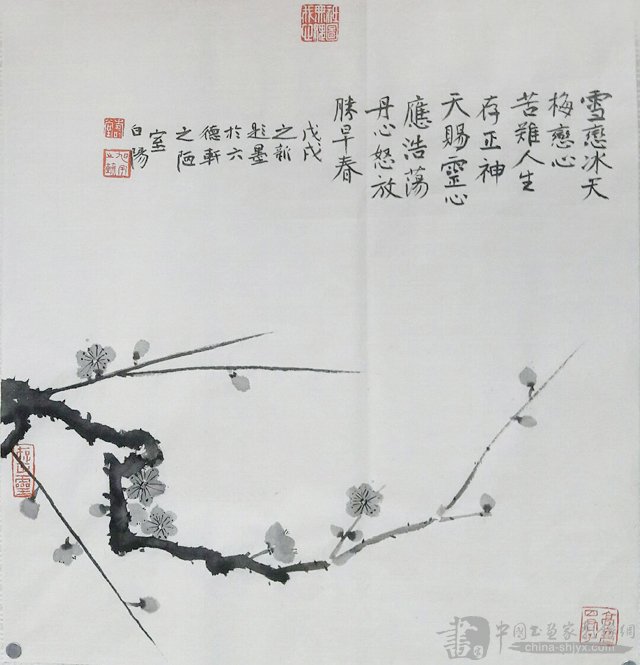 雪戀冰天
梅戀心
苦難人生
存正神
天賜靈心
應浩蕩
丹心怒放
勝早春
戊戌
之新
彩墨
於六
德軒
之陋
室
白陽
中國書畫家
網
china-shjyx.com